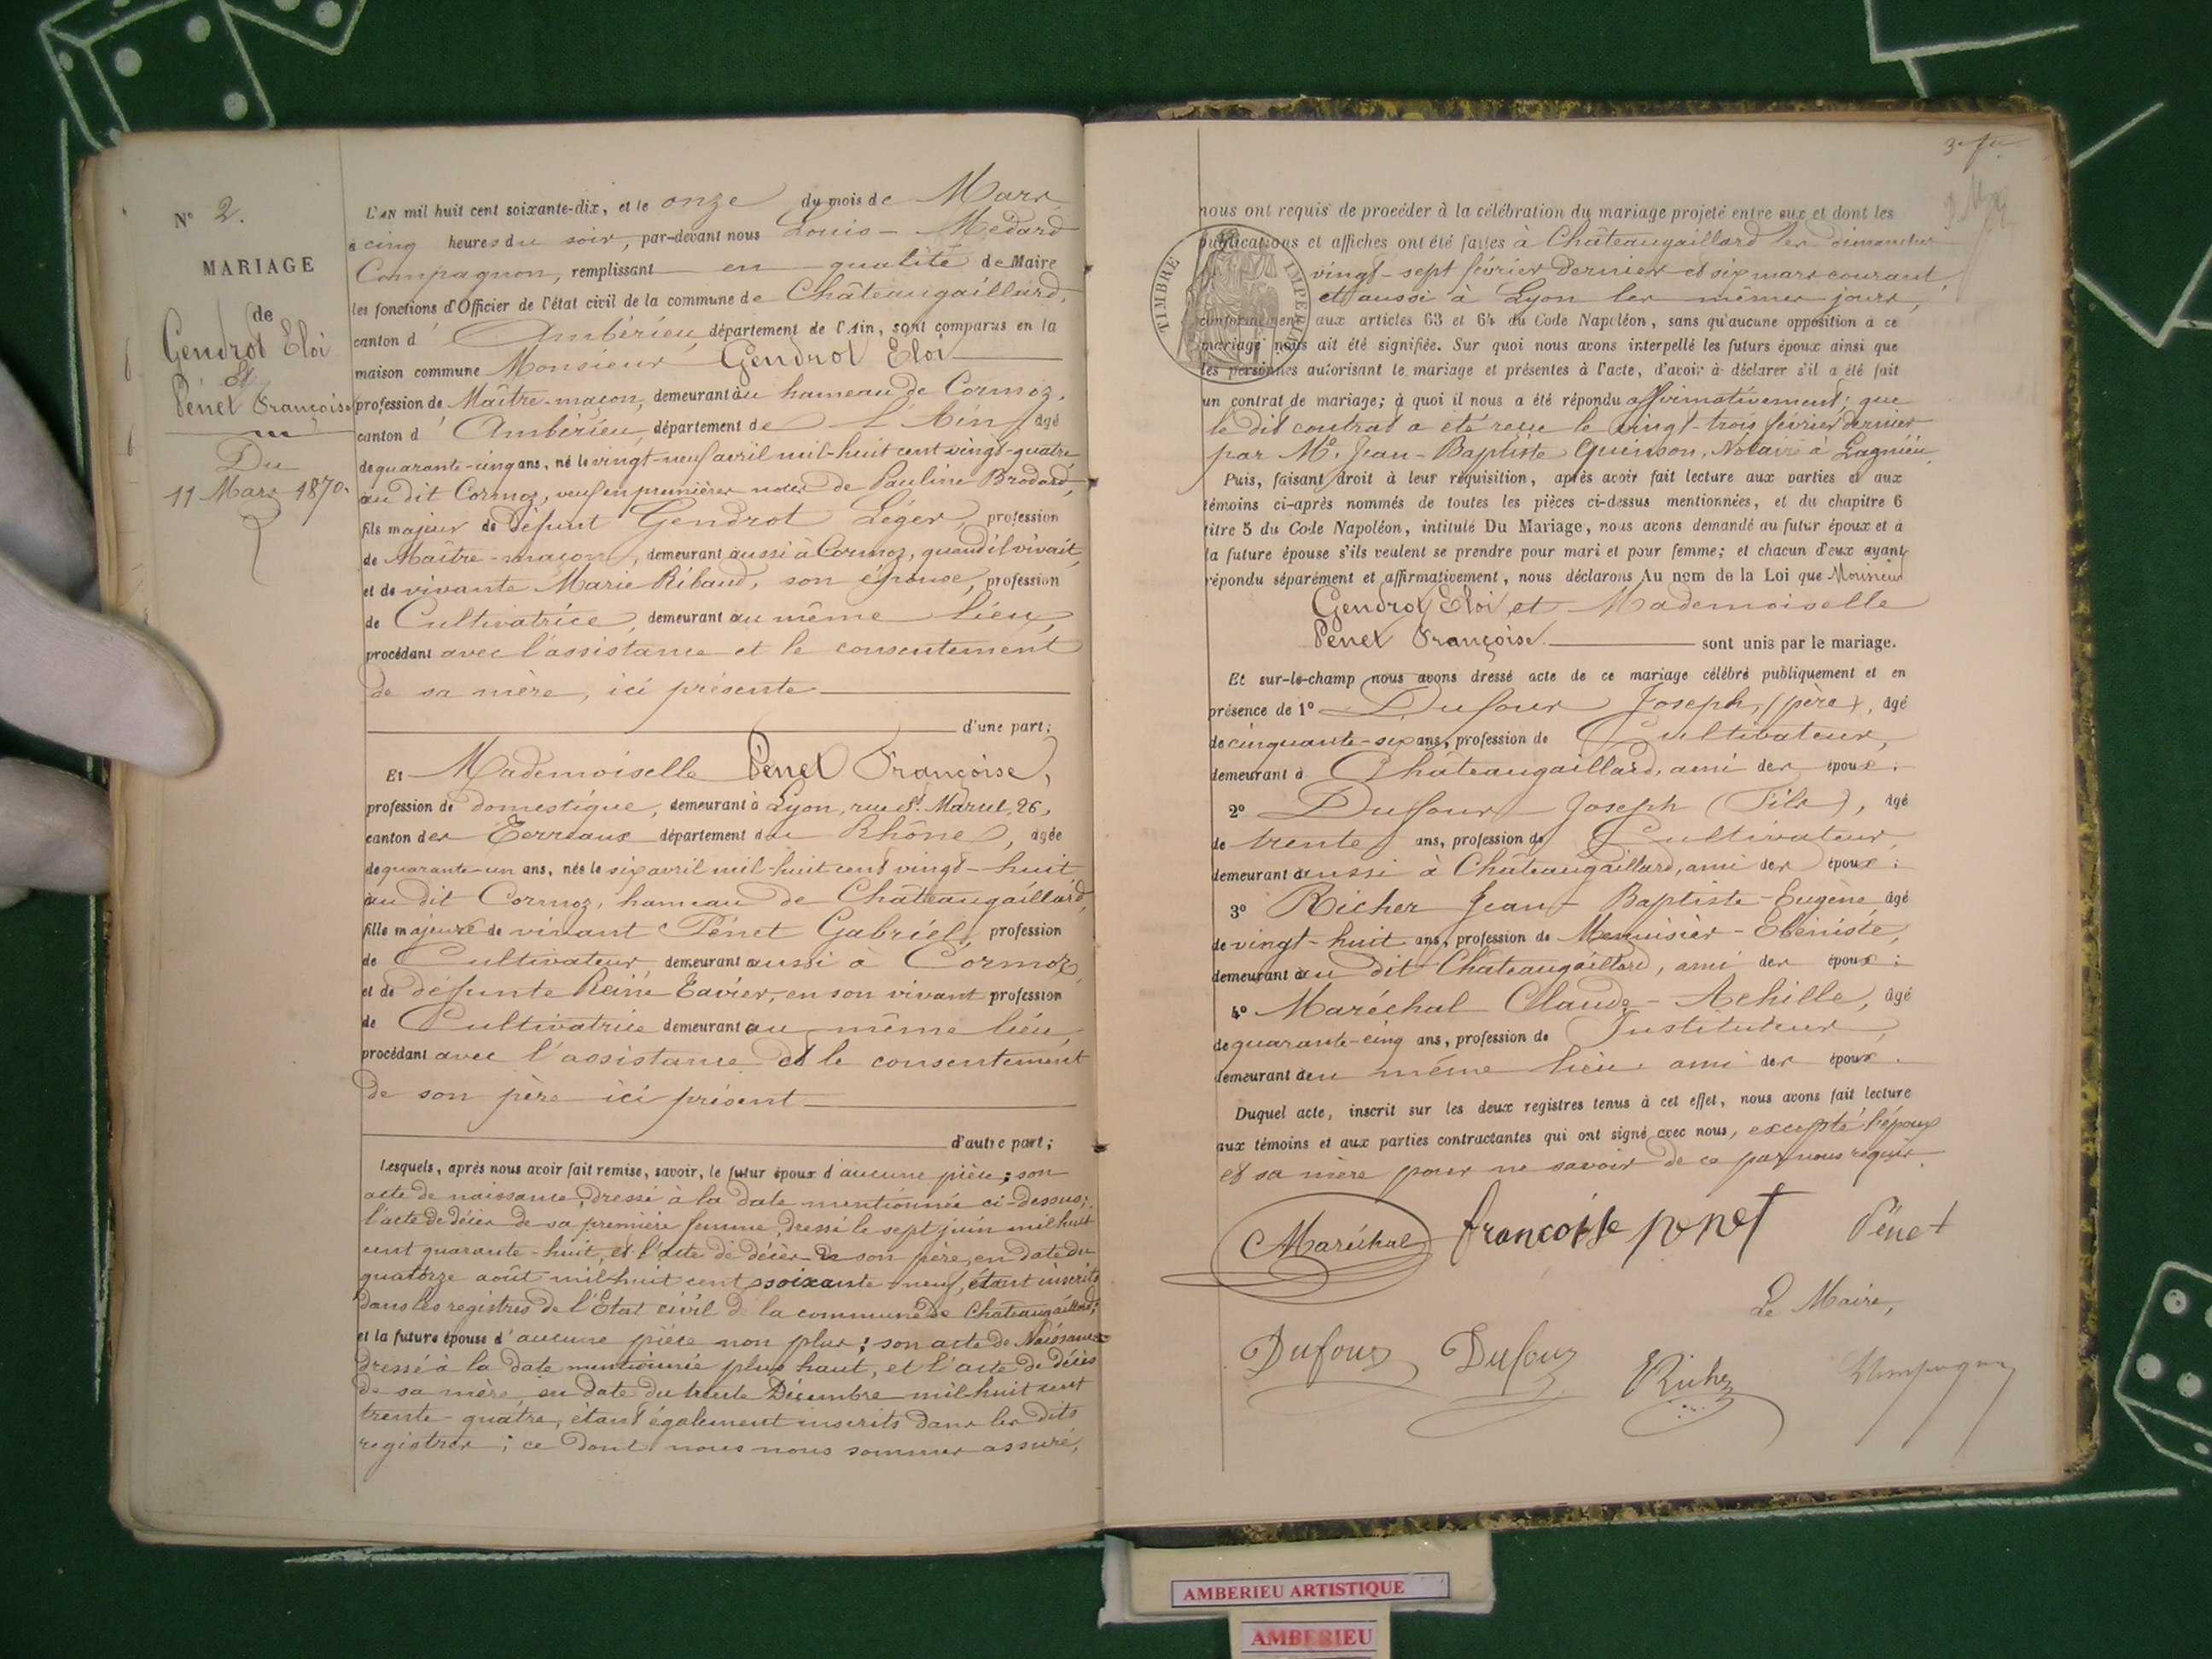 N° 2.
MARIAGE
de
Gendrot Eloi
et
Pénet Françoise
Du
11 Mars 1870.
L'AN mil huit cent soixante-dix, et le onze du mois de Mars
à cinq heures du soir, par-devant nous Louis-Médard
Compagnon, remplissant en qualité de Maire
les fonctions d'Officier de l'état civil de la commune de Châteaugaillard,
canton d'Ambérieu, département de l'Ain, sont comparus en la
maison commune Monsieur Gendrot Eloi
profession de Maître-maçon, demeurant au hameau de Cormoz,
canton d'Ambérieu, département de L'Ain, âgé
de quarante-cinq ans, né le vingt-neuf avril mil-huit cent vingt-quatre
au dit Cormoz, veuf en premières noces de Pauline Brodard,
fils majeur de défunt Gendrot Léger, profession
de Maître-maçon, demeurant aussi à Cormoz, quand il vivait,
et de vivante Marie Ribaud, son épouse, profession
de Cultivatrice, demeurant au même lieu,
procédant avec l'assistance et le consentement
de sa mère, ici présente
d'une part;
Et Mademoiselle Penet Françoise,
profession de domestique, demeurant à Lyon, rue St. Marcel, 26,
canton des Terreaux département du Rhône, âgée
de quarante-un ans, née le six avril mil-huit cent vingt-huit
au dit Cormoz, hameau de Châteaugaillard,
fille majeure de vivant Pénet Gabriel, profession
de Cultivateur demeurant aussi à Cormoz,
et de défunte Reine Tavier, en son vivant profession
de Cultivatrice demeurant au même lieu,
procédant avec l'assistance et le consentement
de son père ici présent
d'autre part;
Lesquels, après nous avoir fait remise, savoir, le futur époux d'aucune pièce; son
acte de naissance, dressé à la date mentionnée ci-dessus;
l'acte de décès de sa première femme, dressé le sept juin mil huit
cent quarante-huit, et l'acte de décès de son père, en date du
quatorze août mil-huit cent soixante-neuf, étant inscrits
dans les registres de l'Etat civil de la commune de Châteaugaillard;
et la future épouse d'aucune pièce non plus; son acte de Naissance
dressé à la date mentionnée plus haut, et l'acte de décès
de sa mère, en date du trente Décembre mil-huit cent
trente-quatre, étant également inscrits dans les dits
registres; ce dont nous nous sommes assuré,
nous ont requis de procéder à la célébration du mariage projeté entre eux et dont les
publications et affiches ont été faites à Châteaugaillard les dimanches
vingt-sept février dernier et six mars courant,
et aussi à Lyon les mêmes jours,
TIMBRE IMPERIAL
conformément aux articles 63 et 64 du Code Napoléon, sans qu'aucune opposition à ce
mariage nous ait été signifiée. Sur quoi nous avons interpellé les futurs époux ainsi que
les personnes autorisant le mariage et présentes à l'acte, d'avoir à déclarer s'il a été fait
un contrat de mariage; à quoi il nous a été répondu affirmativement; que
le dit contrat a été reçu le vingt-trois février dernier
par Me. Jean-Baptiste Quinson, Notaire à Lagnieu.
Puis, faisant droit à leur réquisition, après avoir fait lecture aux parties et aux
témoins ci-après nommés de toutes les pièces ci-dessus mentionnées, et du chapitre 6
titre 5 du Code Napoléon, intitulé Du Mariage, nous avons demandé au futur époux et à
la future épouse s'ils veulent se prendre pour mari et pour femme; et chacun d'eux ayant
répondu séparément et affirmativement, nous déclarons Au nom de la Loi que Monsieur
Gendrot Eloi et Mademoiselle
Penet Françoise sont unis par le mariage.
Et sur-le-champ nous avons dressé acte de ce mariage célébré publiquement et en
présence de 1° Dufour Joseph, (père), âgé
de cinquante-six ans, profession de Cultivateur,
demeurant à Châteaugaillard, ami des époux.
2° Dufour Joseph (Fils), âgé
de trente ans, profession de Cultivateur,
demeurant aussi à Châteaugaillard, ami des époux:
3° Richer Jean-Baptiste-Eugène, âgé
de vingt-huit ans, profession de Menuisier-Ebéniste,
demeurant au dit Châteaugaillard, ami des époux:
4° Maréchal Claude-Achille, âgé
de quarante-cinq ans, profession de Instituteur,
demeurant au même lieu, ami des époux.
Duquel acte, inscrit sur les deux registres tenus à cet effet, nous avons fait lecture
aux témoins et aux parties contractantes qui ont signé avec nous, excepté l'époux
et sa mère pour ne savoir de ce par nous requis.
Maréchal françoise penet Pénet
Le Maire,
Dufour Dufour Richer Compagnon
AMBERIEU ARTISTIQUE
AMBERIEU